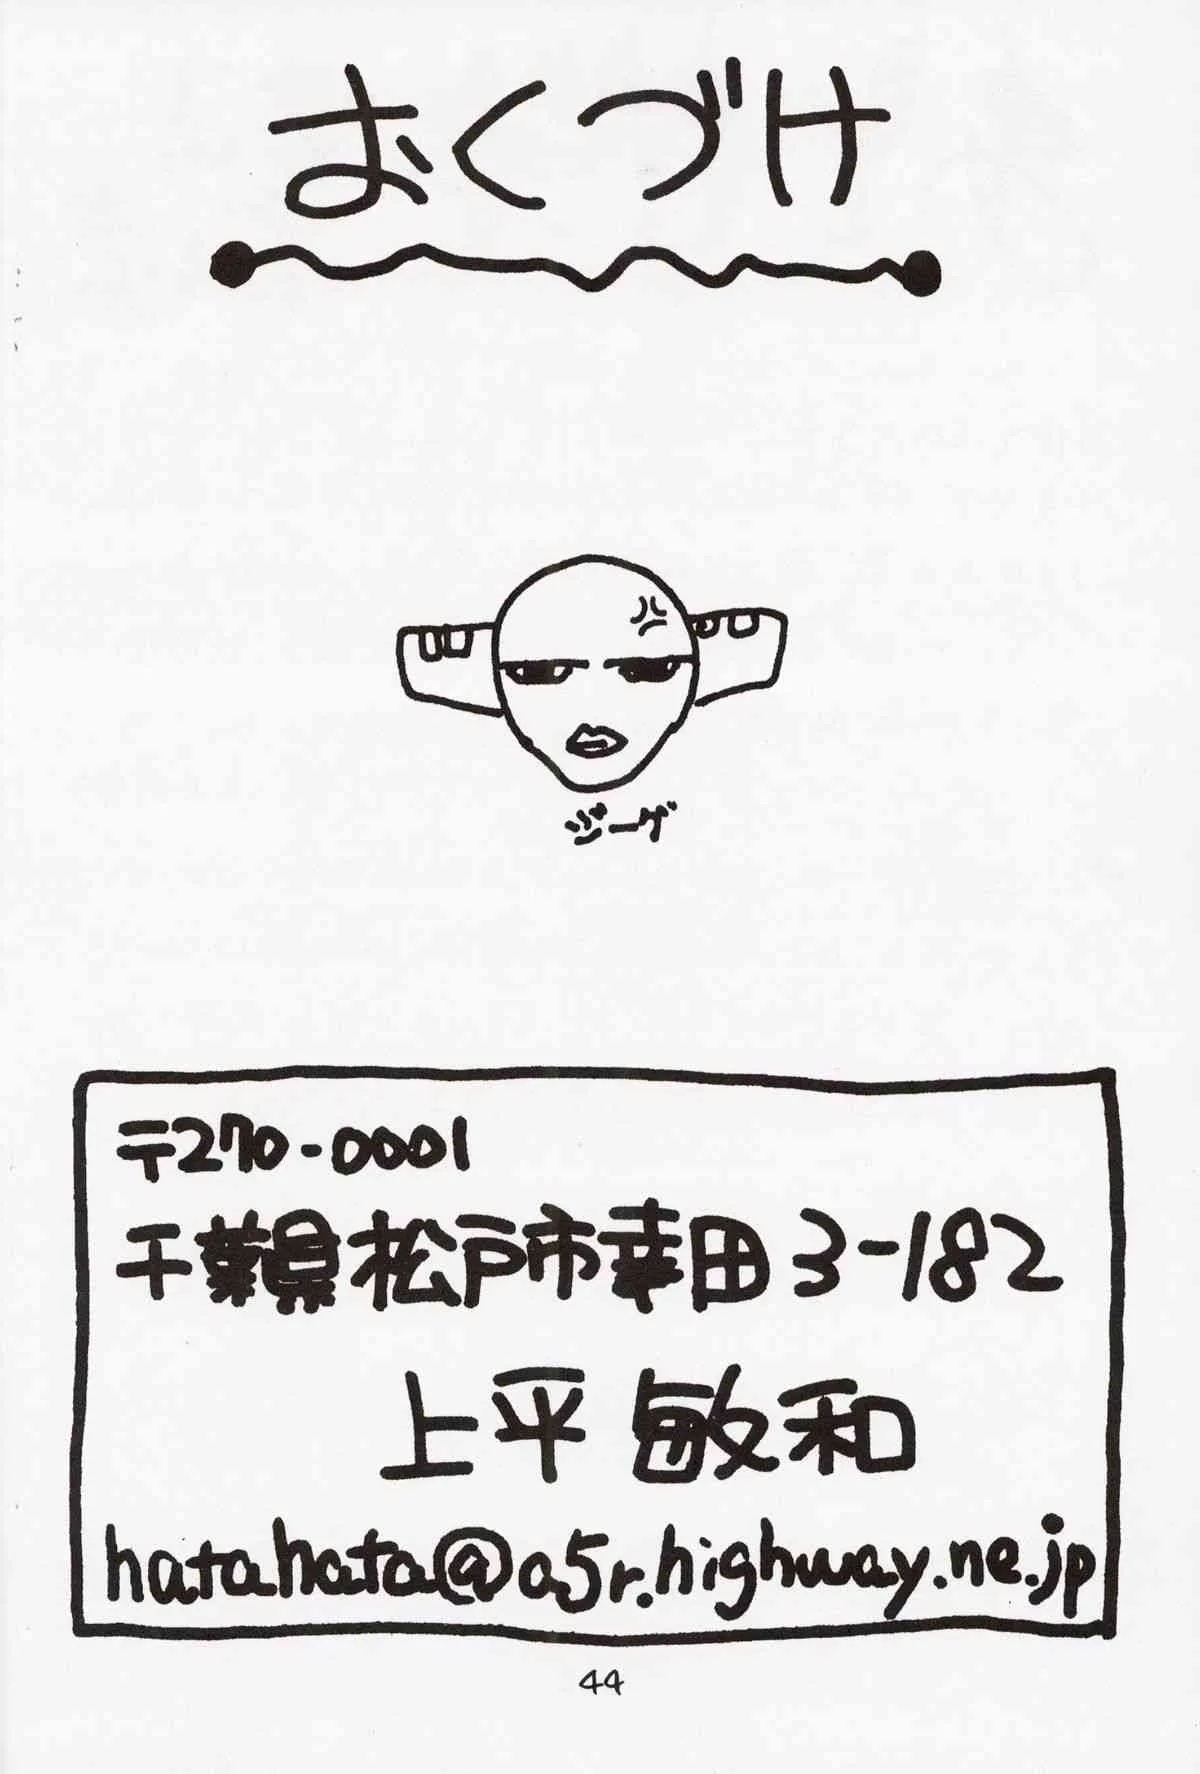 おくづけ
ジーグ
〒270-0001
千葉県松戸市幸田3-182
上平 敏和
hatahata@a5r.highway.ne.jp
44